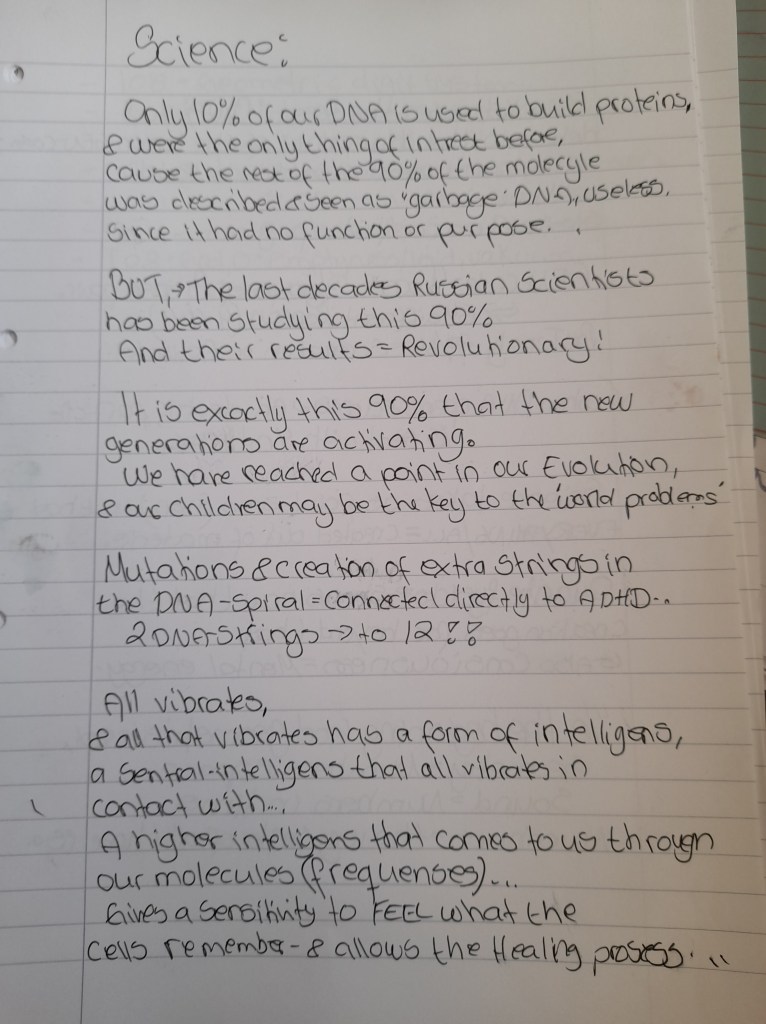 Science:
Only 10% of our DNA is used to build proteins,
& were the only thing of intrest before,
cause the rest of the 90% of the molecyle
was described & seen as "garbage" DNA, useless.
Since it had no function or purpose.
BUT,→The last decades Russian Scientists
has been studying this 90%
And their results = Revolutionary!
It is excactly this 90% that the new
generations are activating.
We have reached a point in our Evolution,
& our children may be the key to the 'world problems'
Mutations & creation of extra strings in
the DNA-Spiral = Connected directly to ADHD..
2 DNA-Strings → to 12 !!
All vibrates,
& all that vibrates has a form of intelligens,
a sentral-intelligens that all vibrates in
contact with...
A higher intelligens that comes to us through
our molecules (frequenses)...
Gives a sensitivity to FEEL what the
cells remember - & allows the Healing prosess...